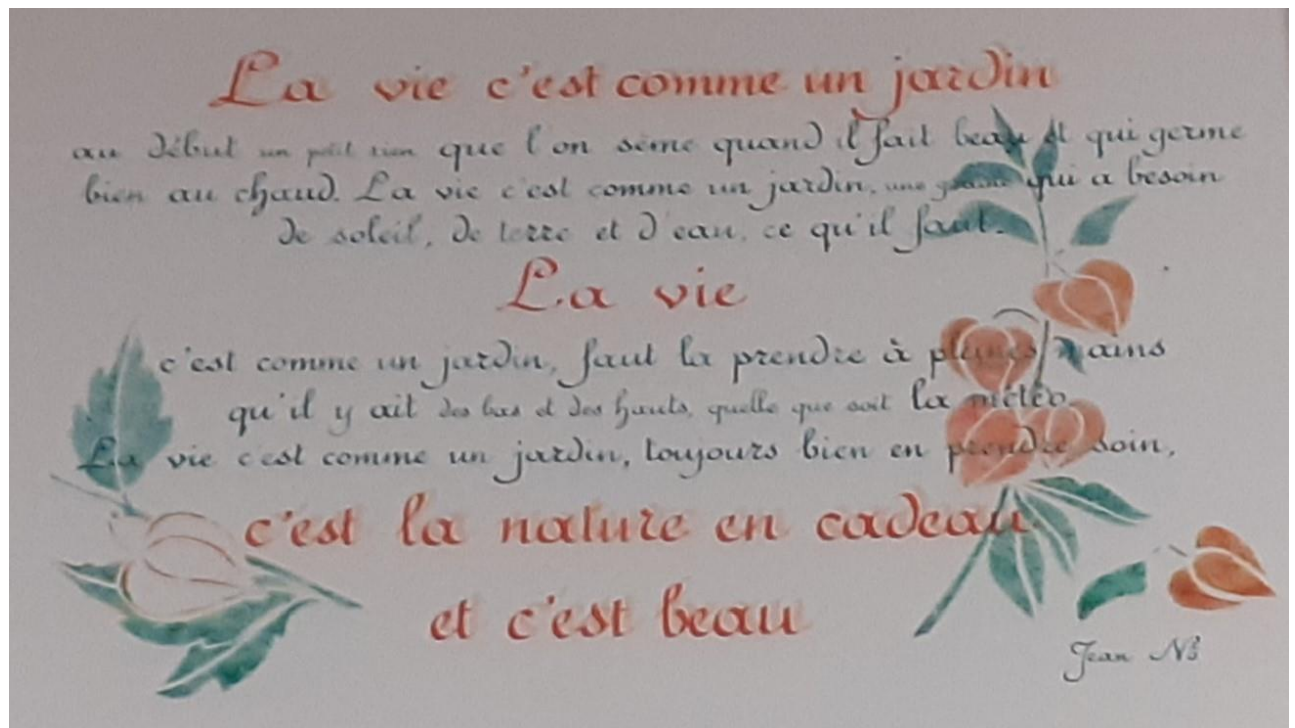 La vie c'est comme un jardin
au début un petit rien que l'on sème quand il fait beau et qui germe
bien au chaud. La vie c'est comme un jardin, une graine qui a besoin
de soleil, de terre et d'eau, ce qu'il faut.
La vie
c'est comme un jardin, faut la prendre à pleines mains
qu'il y ait des bas et des hauts, quelle que soit la météo.
La vie c'est comme un jardin, toujours bien en prendre soin,
c'est la nature en cadeau.
et c'est beau
Jean